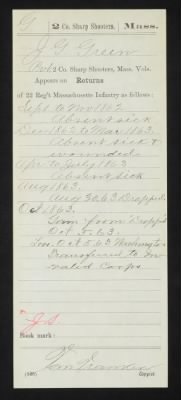 G | 2 Co. Sharp Shooters. | Mass.
J. G. Green
Pvt, 2 Co. Sharp Shooters, Mass. Vols.
Appears on Returns
of 22 Reg't Massachusetts Infantry as follows:
Sept. to Nov 1862.
Absent sick
Dec 1862 to Mar 1863.
Absent sick &
wounded
Apr to July 1863
Absent sick
Aug 1863.
Aug 30, 63 Dropped.
Oct 1863.
Gain from Dropped
Oct 5. 63.
Loss Oct 5. 63
Transferred to In-
valid Corps
J.G.
Book mark:
Copyist.